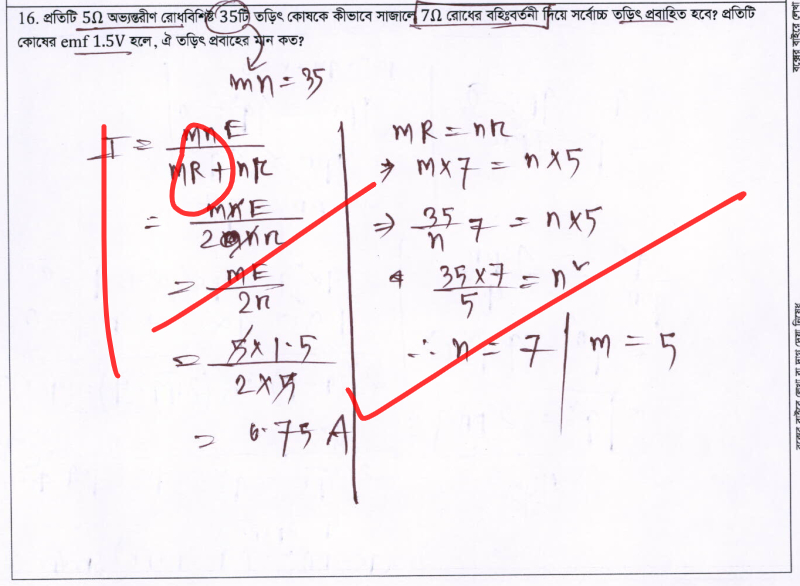 16. প্রতিটি 5Ω অভ্যন্তরীণ রোধবিশিষ্ট 35টি তড়িৎ কোষকে কীভাবে সাজালে 7Ω রোধের বহিঃবর্তনী দিয়ে সর্বোচ্চ তড়িৎ প্রবাহিত হবে? প্রতিটি
কোষের emf 1.5V হলে, ঐ তড়িৎ প্রবাহের মান কত?
mn = 35
I = mnE / mR + nr
= mnE / 2nr
= mE / 2r
= 5×1.5 / 2×5
= 0.75 A
mR = nr
⇒ m×7 = n×5
⇒ 35/n 7 = n×5
35×7 / 5 = n²
∴ n = 7 | m = 5